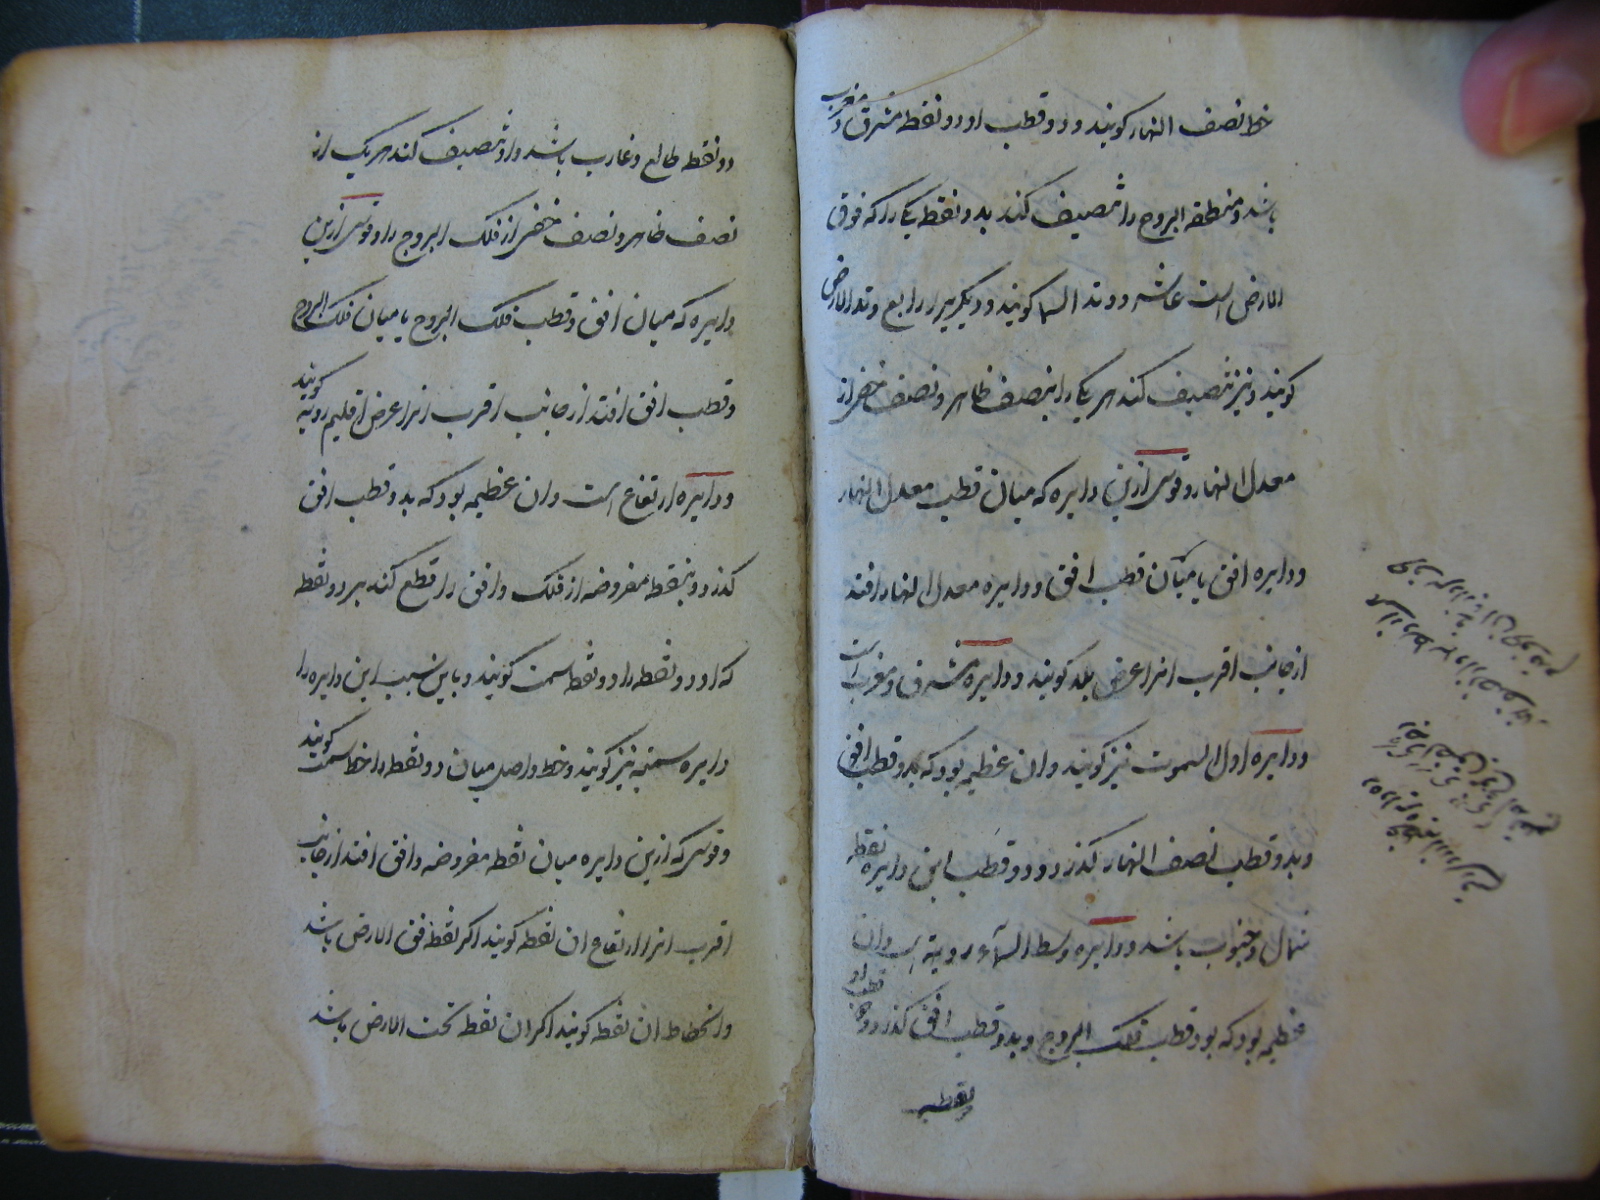 خط نصف النهار کویند و دو قطب او دو نقطه مشرق و مغرب
باشد و منطقه البروج را تنصیف کند بدو نقطه یکی را که فوق
الارض است عاشر و وتد السما کویند و دیکری را رابع و وتد الارض
کویند و نیز تنصیف کند هر یکی را از نصف ظاهر و نصف خفی از
معدل النهار و قوسی ازین دایره که میان قطب معدل النهار
و دایره افق یا میان قطب افق و دایره معدل النهار افتد
از جانب اقرب انرا عرض بلد کویند و دایره مشرق و مغرب است
و دایره اول السموت نیز کویند و ان عظیمه بود که بدو قطب افق
و بدو قطب نصف النهار کذرد و دو قطب این دایره نقطه
شمال و جنوب باشد و دایره وسط السماء رویة است و ان
عظیمه بود که بدو قطب فلک البروج و بدو قطب افق کذرد و دو قطب او
نقطه
دو نقطه طالع و غارب باشد و او تنصیف کند هر یک از
نصف ظاهر و نصف خفی از فلک البروج را و قوسی ازین
دایره که میان افق و قطب فلک البروج یا میان فلک البروج
و قطب افق افتد از جانب اقرب انرا عرض اقلیم رویة کویند
و دایره ارتفاع است و ان عظیمه بود که بدو قطب افق
کذرد و بنقطه مفروضه از فلک و افق را قطع کند بر دو نقطه
که او دو نقطه را دو نقطه سمت کویند و باین سبب این دایره را
دایره سمتیه نیز کویند و خط واصل میان دو نقطه را خط سمت کویند
و قوسی که ازین دایره میان نقطه مفروضه و افق افتد از جانب
اقرب انرا ارتفاع ان نقطه کویند اکر نقطه فوق الارض باشد
و انحطاط ان نقطه کویند اکر ان نقطه تحت الارض باشد